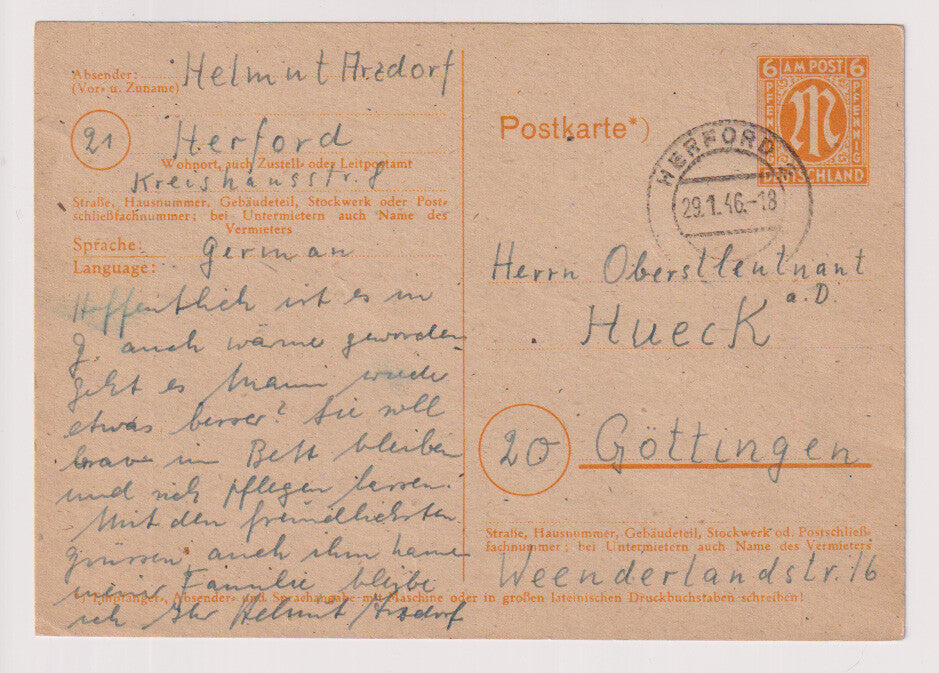 Absender:
(Vor- u. Zuname)
Helmut Arzdorf
21
Herford
Wohnort, auch Zustell- oder Leitpostamt
Kreishausstr. 8
Straße, Hausnummer, Gebäudeteil, Stockwerk oder Post-
schließfachnummer; bei Untermietern auch Name des
Vermieters
Sprache:
Language:
German
Hoffentlich ist es in
G. auch wärme geworden
geht es Mami wieder
etwas besser? Sie soll
brave im Bett bleiben
und sich pflegen lassen.
Mit den freundlichsten
grüssen, auch im
meiner Familie bleibe
ich Ihr Helmut Arzdorf
Postkarte*)
6 AM POST 6
PFENNIG PFENNIG
M
DEUTSCHLAND
HERFORD
29.1.46.-18
Herrn Oberstleutnant
a.D.
Hueck
20
Göttingen
Straße, Hausnummer, Gebäudeteil, Stockwerk od. Postschließ-
fachnummer; bei Untermietern auch Name des Vermieters
Weenderlandstr. 16
*) Empfänger-, Absender- und Sprachangabe mit Maschine oder in großen lateinischen Druckbuchstaben schreiben!